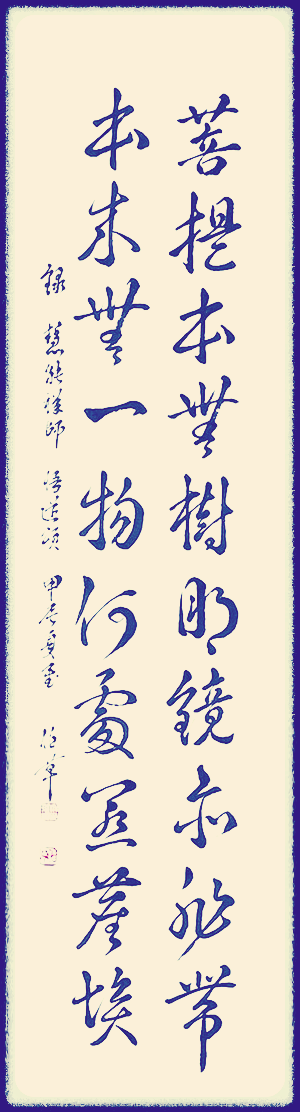 菩提本無樹明鏡亦非帶
本来無一物何處惹塵埃
錄 慧能禪師 悟道頌 甲辰夏